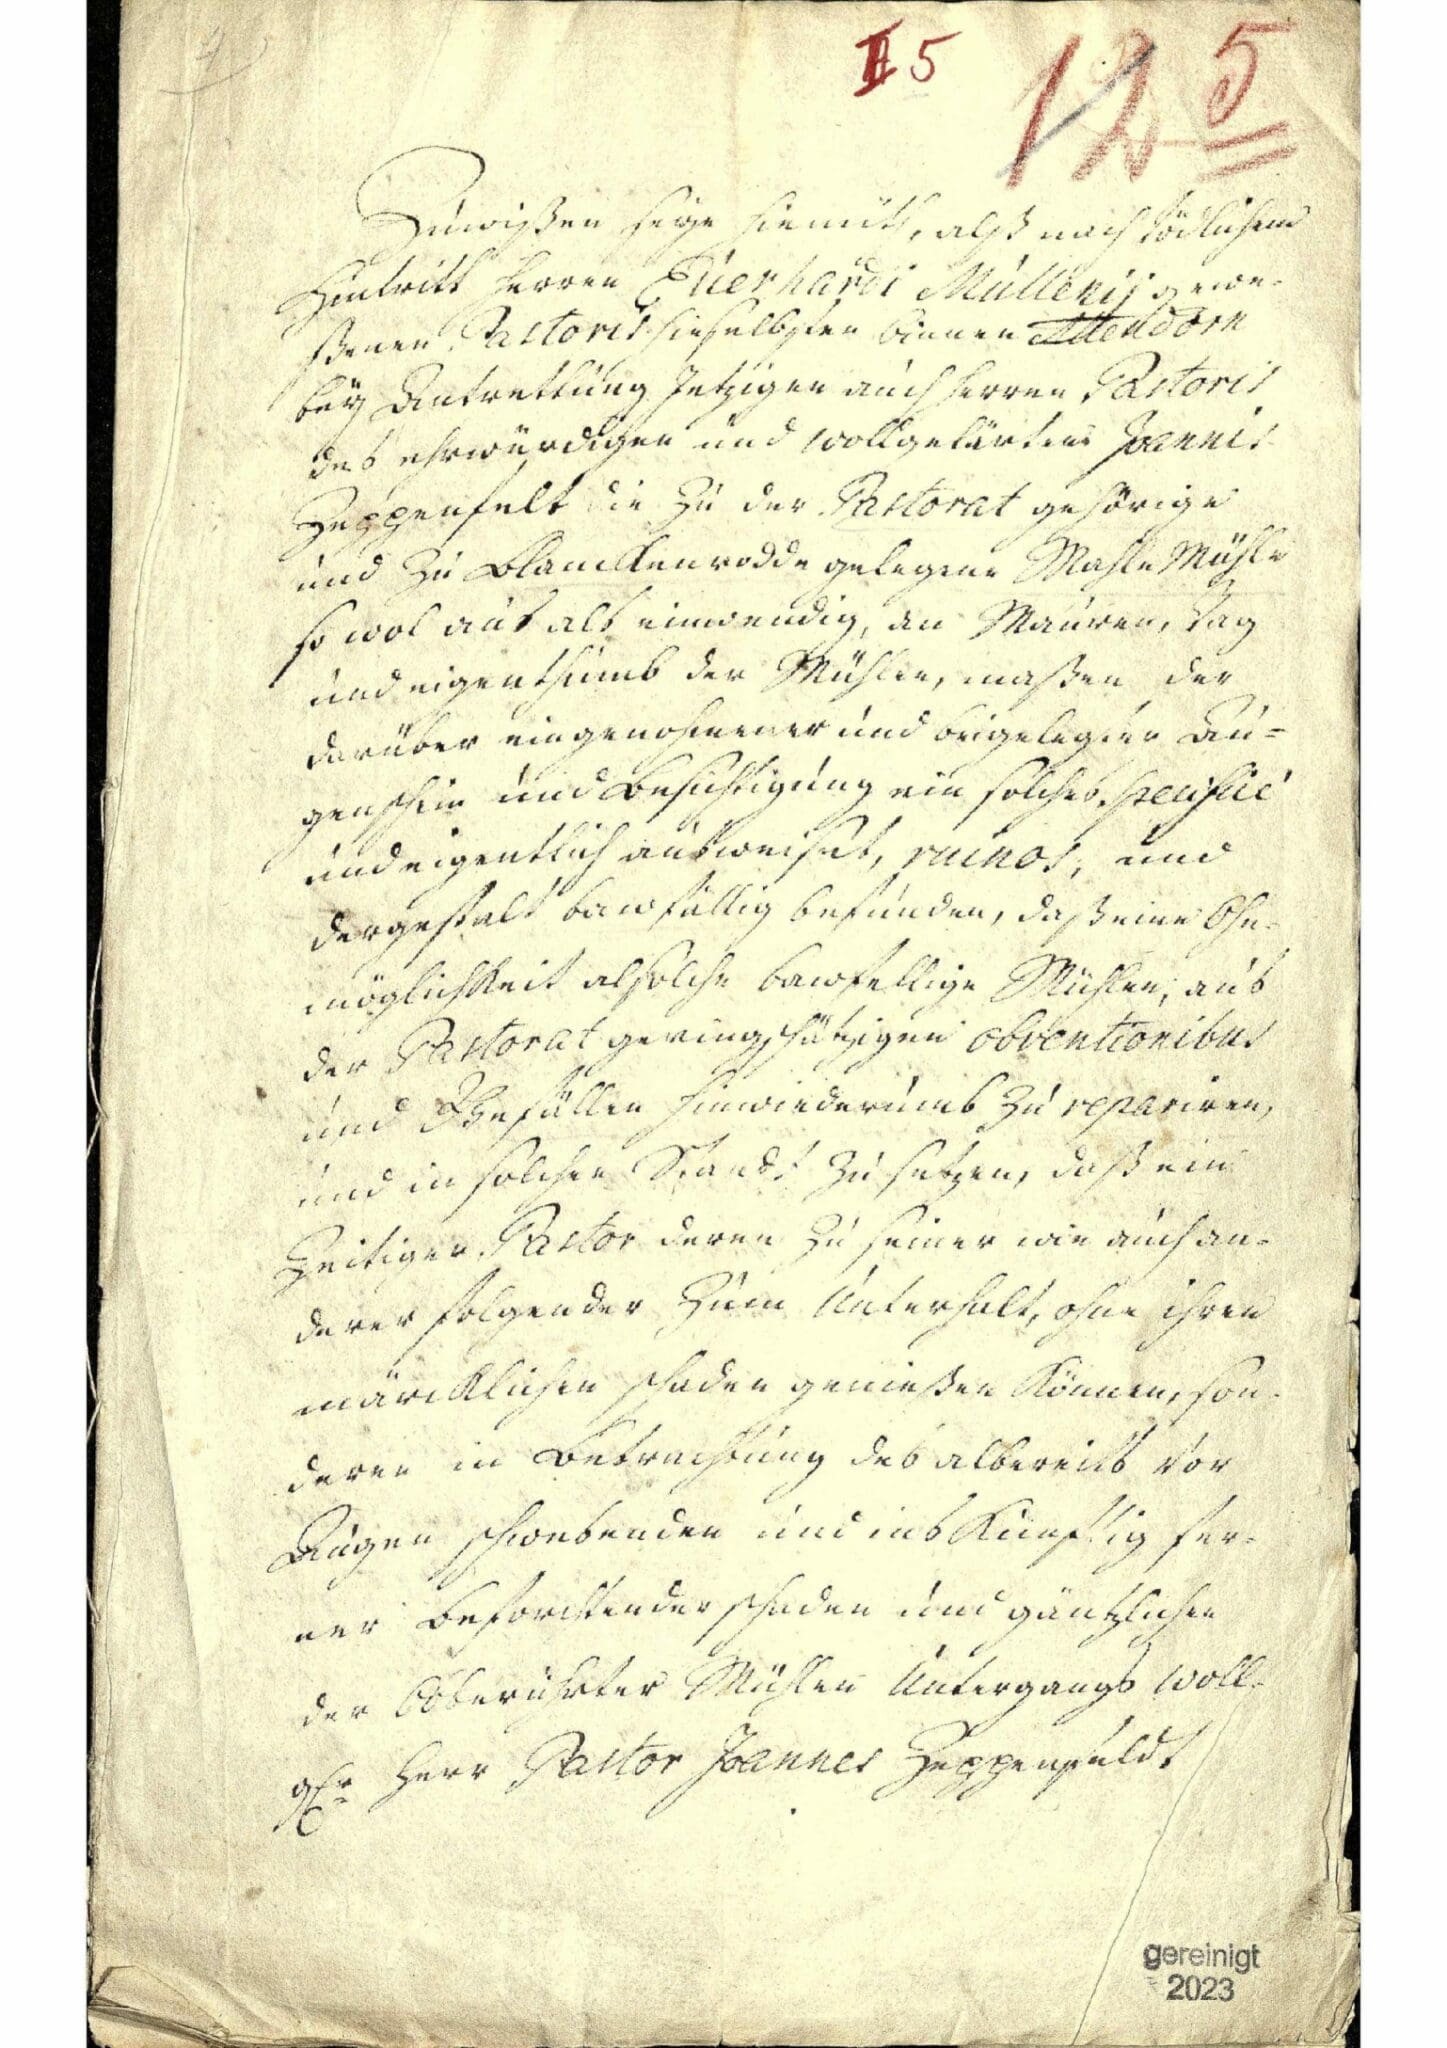 II 5
12 5
Zuwißen seye hiemith, alß nach tödlichem
Hintritt Herren Everhardi Mülleri gewe-
ßenen Pastoris hieselbsten binnen Attendorn
bey Antrettung Jetzigen auch Herren Pastoris
des ehrwürdigen und wollgelärten Joannis
Zeppenfelt die zu der Pastorat gehörige
und zu Blanckenrodde gelegene Mahle Mühle
so wol aus als einwendig, an Mauren, tag
und eigenthumb der Mühlen, maßen der
darüber eingenohmener und beigelegter Au-
genschein und Besichtigung ein solches specificè
und eigentlich außweiset, ruinos, und
dergestalt bawfällig befunden, daß eine Ohn-
möglichkeit alsolche bawfellige Mühlen, aus
der Pastorat geringschätzigen obventionibus
und Gefällen hinwiederumb zu repariren,
und in solchen Standt zu setzen, daß ein
Zeitiger Pastor deren zu seiner wie auch an-
derer folgender zum Unterhalt, ohne ihren
märcklichen schaden genießen können, son-
deren in Betrachtung des albereits vor
Augen schwebenden und ins Künftig fer-
ner beforchtender schaden und gäntzlichen
der Obberührter Mühlen Untergangs woll-
gr. Herr Pastor Joannes Zeppenfeldt
gereinigt
2023